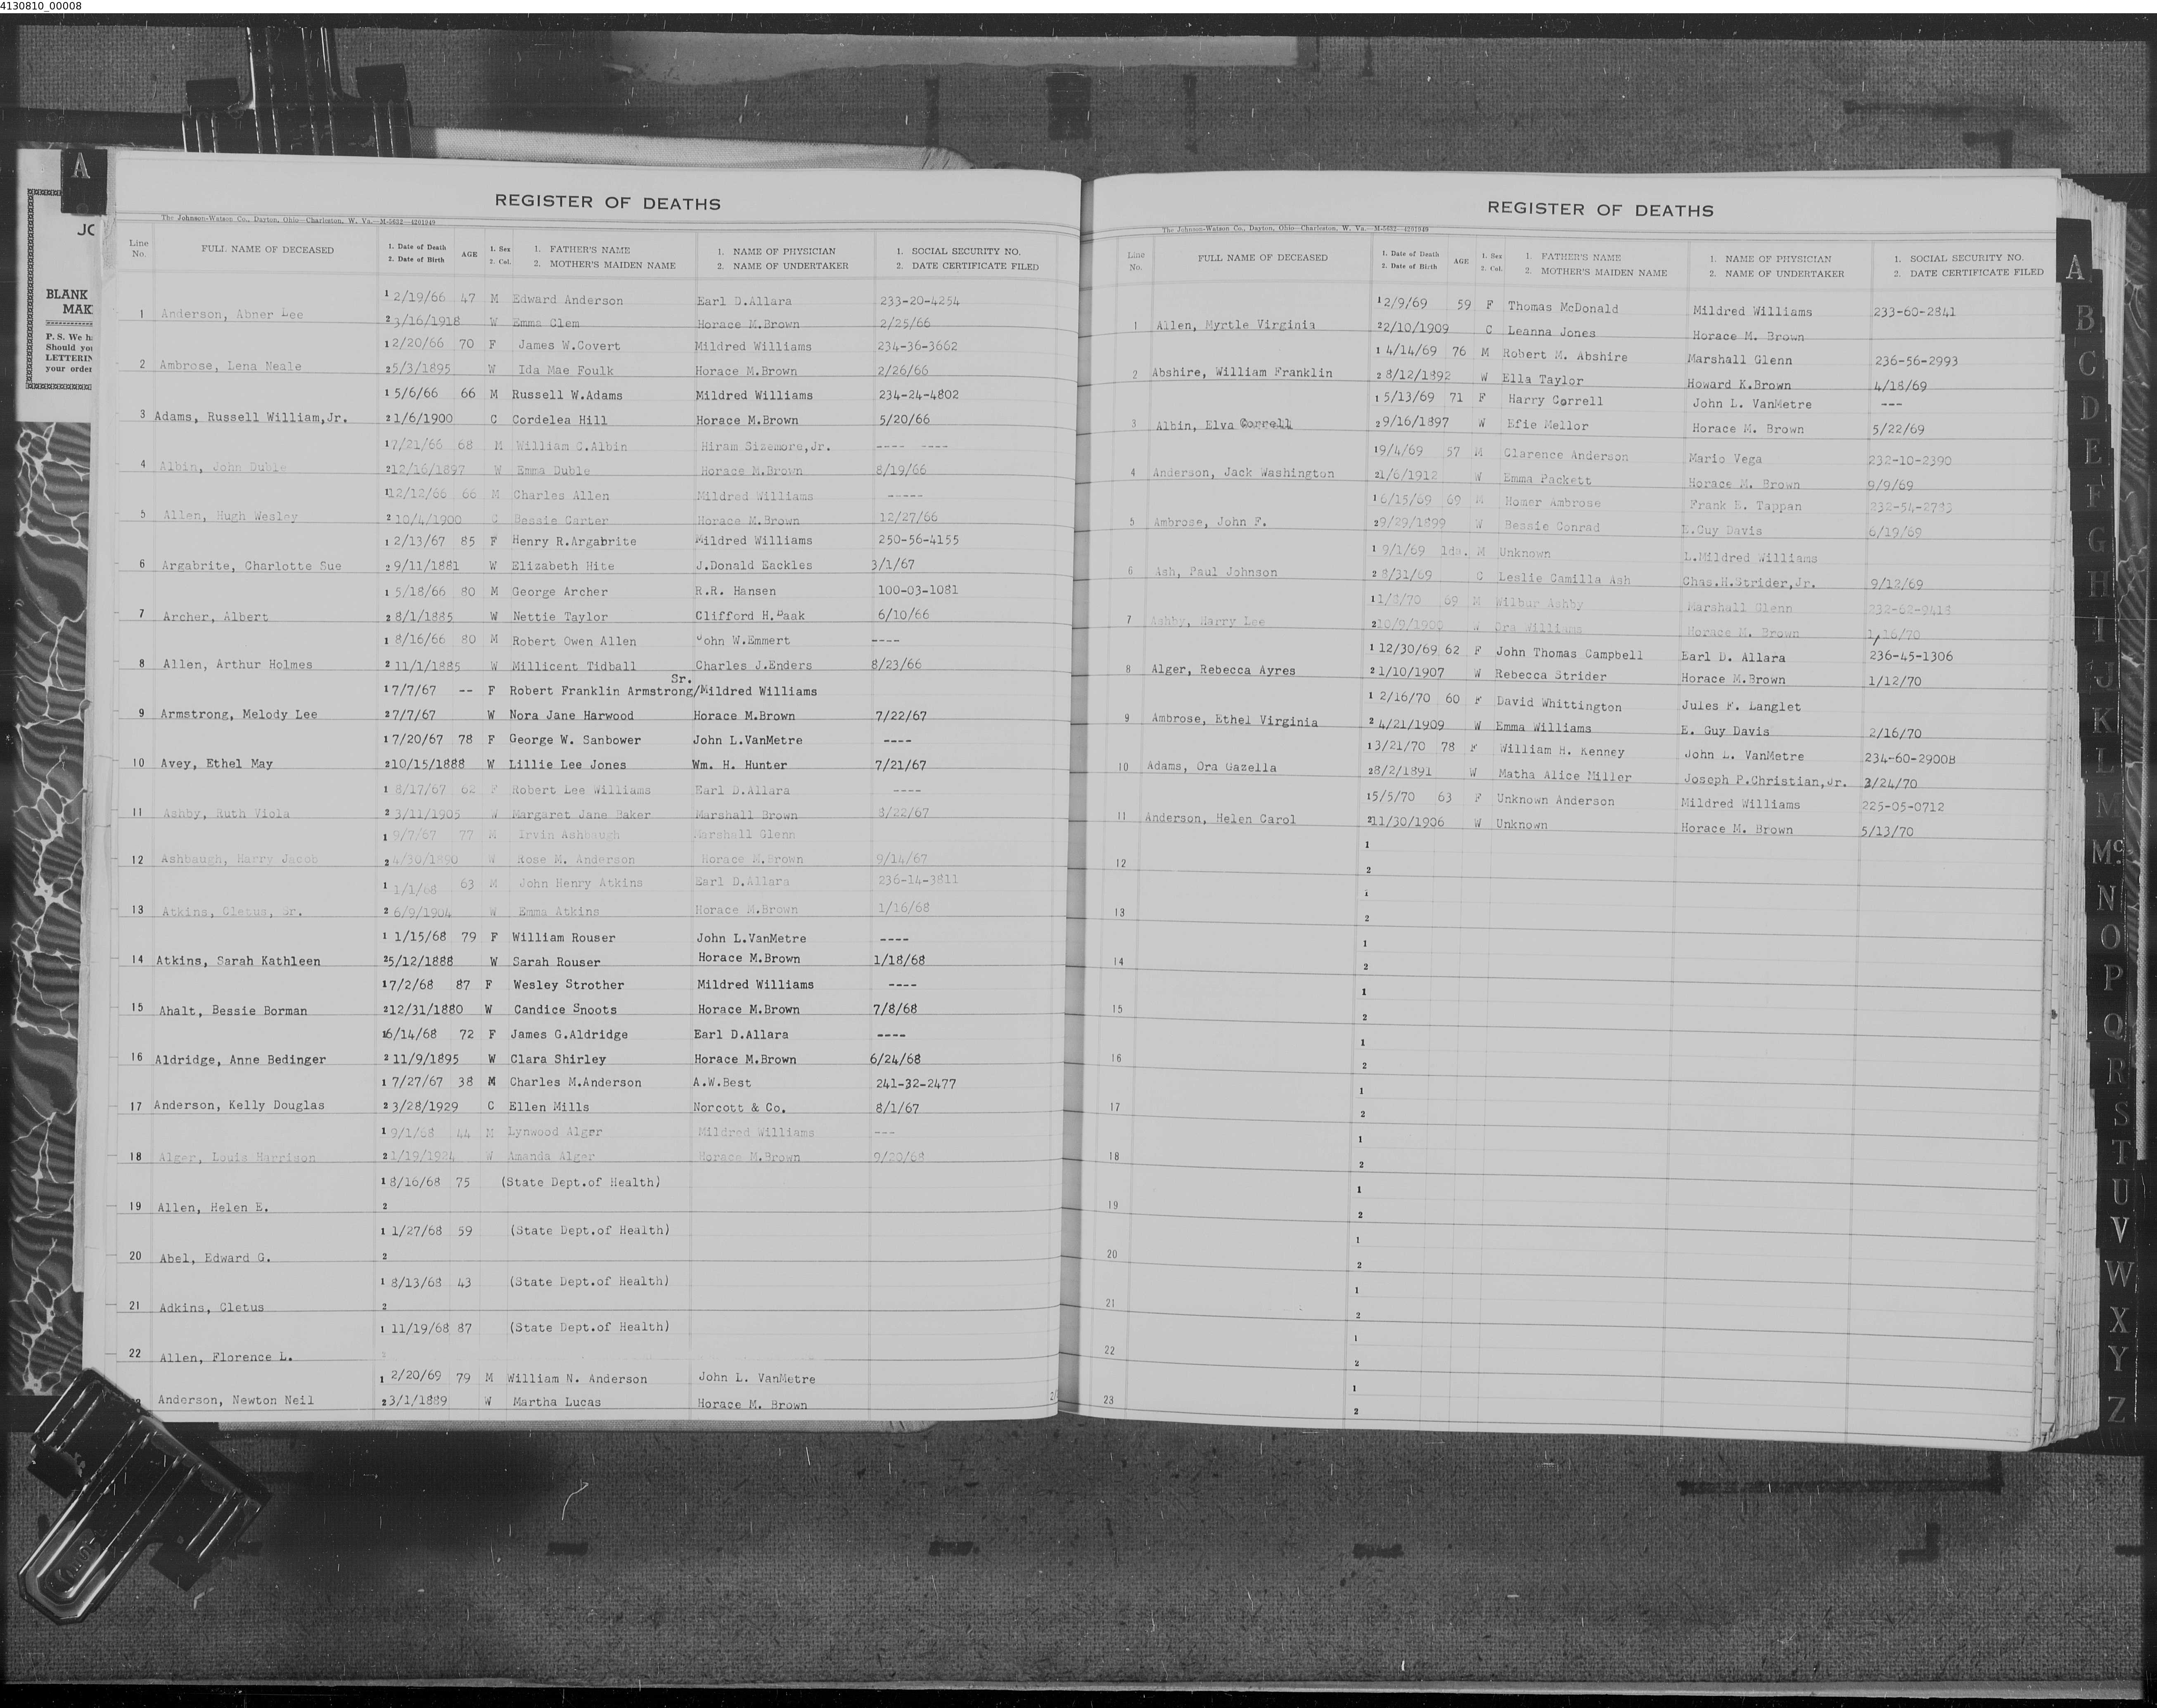 4130810_00008
A
JO
BLANK
MAK
P. S. We h
Should yo
LETTERIN
your order
REGISTER OF DEATHS
The Johnson-Watson Co., Dayton, Ohio—Charleston, W. Va.—M-5632—4201949
Line No. FULL NAME OF DECEASED 1. Date of Death 2. Date of Birth AGE 1. Sex 2. Col. 1. FATHER'S NAME 2. MOTHER'S MAIDEN NAME 1. NAME OF PHYSICIAN 2. NAME OF UNDERTAKER 1. SOCIAL SECURITY NO. 2. DATE CERTIFICATE FILED
1 2/19/66 47 M Edward Anderson Earl D.Allara 233-20-4254
1 Anderson, Abner Lee 2 3/16/1918 W Emma Clem Horace M.Brown 2/25/66
1 2/20/66 70 F James W.Covert Mildred Williams 234-36-3662
2 Ambrose, Lena Neale 2 5/3/1895 W Ida Mae Foulk Horace M.Brown 2/26/66
1 5/6/66 66 M Russell W.Adams Mildred Williams 234-24-4802
3 Adams, Russell William,Jr. 2 1/6/1900 C Cordelea Hill Horace M.Brown 5/20/66
1 7/21/66 68 M William C.Albin Hiram Sizemore,Jr. ---- ----
4 Albin, John Duble 2 12/16/1897 W Emma Duble Horace M.Brown 8/19/66
1 12/12/66 66 M Charles Allen Mildred Williams -----
5 Allen, Hugh Wesley 2 10/4/1900 C Bessie Carter Horace M.Brown 12/27/66
1 2/13/67 85 F Henry R.Argabrite Mildred Williams 250-56-4155
6 Argabrite, Charlotte Sue 2 9/11/1881 W Elizabeth Hite J.Donald Eackles 3/1/67
1 5/18/66 80 M George Archer R.R. Hansen 100-03-1081
7 Archer, Albert 2 8/1/1885 W Nettie Taylor Clifford H.Paak 6/10/66
1 8/16/66 80 M Robert Owen Allen John W.Emmert ----
8 Allen, Arthur Holmes 2 11/1/1885 W Millicent Tidball Charles J.Enders 8/23/66
Sr.
1 7/7/67 -- F Robert Franklin Armstrong/Mildred Williams
9 Armstrong, Melody Lee 2 7/7/67 W Nora Jane Harwood Horace M.Brown 7/22/67
1 7/20/67 78 F George W. Sanbower John L.VanMetre ----
10 Avey, Ethel May 2 10/15/1888 W Lillie Lee Jones Wm. H. Hunter 7/21/67
1 8/17/67 62 F Robert Lee Williams Earl D.Allara ----
11 Ashby, Ruth Viola 2 3/11/1905 W Margaret Jane Baker Marshall Brown 8/22/67
1 9/7/67 77 M Irvin Ashbaugh Marshall Glenn
12 Ashbaugh, Harry Jacob 2 4/30/1890 W Rose M. Anderson Horace M.Brown 9/14/67
1 1/1/68 63 M John Henry Atkins Earl D.Allara 236-14-3811
13 Atkins, Cletus, Sr. 2 6/9/1904 W Emma Atkins Horace M.Brown 1/16/68
1 1/15/68 79 F William Rouser John L.VanMetre ----
14 Atkins, Sarah Kathleen 2 5/12/1888 W Sarah Rouser Horace M.Brown 1/18/68
1 7/2/68 87 F Wesley Strother Mildred Williams ----
15 Ahalt, Bessie Borman 2 12/31/1880 W Candice Snoots Horace M.Brown 7/8/68
1 6/14/68 72 F James G.Aldridge Earl D.Allara ----
16 Aldridge, Anne Bedinger 2 11/9/1895 W Clara Shirley Horace M.Brown 6/24/68
1 7/27/67 38 M Charles M.Anderson A.W.Best 241-32-2477
17 Anderson, Kelly Douglas 2 3/28/1929 C Ellen Mills Norcott & Co. 8/1/67
1 9/1/68 44 M Lynwood Alger Mildred Williams ---
18 Alger, Louis Harrison 2 1/19/1924 W Amanda Alger Horace M.Brown 9/20/68
1 8/16/68 75 (State Dept.of Health)
19 Allen, Helen E. 2
1 1/27/68 59 (State Dept.of Health)
20 Abel, Edward G. 2
1 8/13/68 43 (State Dept.of Health)
21 Adkins, Cletus 2
1 11/19/68 87 (State Dept.of Health)
22 Allen, Florence L. 2
1 2/20/69 79 M William N. Anderson John L. VanMetre
Anderson, Newton Neil 2 3/1/1889 W Martha Lucas Horace M. Brown
REGISTER OF DEATHS
The Johnson-Watson Co., Dayton, Ohio—Charleston, W. Va.—M-5632—4201949
Line No. FULL NAME OF DECEASED 1. Date of Death 2. Date of Birth AGE 1. Sex 2. Col. 1. FATHER'S NAME 2. MOTHER'S MAIDEN NAME 1. NAME OF PHYSICIAN 2. NAME OF UNDERTAKER 1. SOCIAL SECURITY NO. 2. DATE CERTIFICATE FILED
1 2/9/69 59 F Thomas McDonald Mildred Williams 233-60-2841
1 Allen, Myrtle Virginia 2 2/10/1909 C Leanna Jones Horace M. Brown
1 4/14/69 76 M Robert M. Abshire Marshall Glenn 236-56-2993
2 Abshire, William Franklin 2 8/12/1892 W Ella Taylor Howard K.Brown 4/18/69
1 5/13/69 71 F Harry Correll John L. VanMetre ---
3 Albin, Elva Correll 2 9/16/1897 W Efie Mellor Horace M. Brown 5/22/69
1 9/4/69 57 M Clarence Anderson Mario Vega 232-10-2390
4 Anderson, Jack Washington 2 1/6/1912 W Emma Packett Horace M. Brown 9/9/69
1 6/15/69 69 M Homer Ambrose Frank B. Tappan 232-54-2783
5 Ambrose, John F. 2 9/29/1899 W Bessie Conrad E.Guy Davis 6/19/69
1 9/1/69 1da. M Unknown L.Mildred Williams
6 Ash, Paul Johnson 2 8/31/69 C Leslie Camilla Ash Chas.H.Strider,Jr. 9/12/69
1 1/8/70 69 M Wilbur Ashby Marshall Glenn 232-62-9418
7 Ashby, Harry Lee 2 10/9/1900 W Ora Williams Horace M. Brown 1/16/70
1 12/30/69 62 F John Thomas Campbell Earl D. Allara 236-45-1306
8 Alger, Rebecca Ayres 2 1/10/1907 W Rebecca Strider Horace M.Brown 1/12/70
1 2/16/70 60 F David Whittington Jules F. Langlet
9 Ambrose, Ethel Virginia 2 4/21/1909 W Emma Williams E. Guy Davis 2/16/70
1 3/21/70 78 F William H. Kenney John L. VanMetre 234-60-2900B
10 Adams, Ora Gazella 2 8/2/1891 W Matha Alice Miller Joseph P.Christian,Jr. 3/24/70
1 5/5/70 63 F Unknown Anderson Mildred Williams 225-05-0712
11 Anderson, Helen Carol 2 11/30/1906 W Unknown Horace M. Brown 5/13/70
1
12 2
1
13 2
1
14 2
1
15 2
1
16 2
1
17 2
1
18 2
1
19 2
1
20 2
1
21 2
1
22 2
1
23 2
A
B
C
D
E
F
G
H
I
J
K
L
M
Mc
N
O
P
Q
R
S
T
U
V
W
X
Y
Z